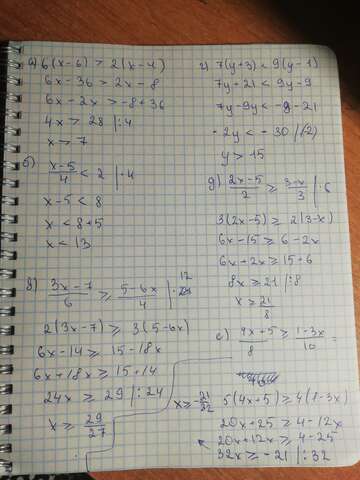 а) 6(x-6) > 2(x-4)
6x-36 > 2x-8
6x-2x > -8+36
4x > 28 |:4
x > 7
б) (x-5)/4 < 2 |·4
x-5 < 8
x < 8+5
x < 13
в) (3x-7)/6 ≥ (5-6x)/4 |·12
2(3x-7) ≥ 3(5-6x)
6x-14 ≥ 15-18x
6x+18x ≥ 15+14
24x ≥ 29 |:24
x ≥ 29/27
г) 7(y+3) < 9(y-1)
7y-21 < 9y-9
7y-9y < -9-21
-2y < -30 |(-2)
y > 15
д) (2x-5)/2 ≥ (3-x)/3 |·6
3(2x-5) ≥ 2(3-x)
6x-15 ≥ 6-2x
6x+2x ≥ 15+6
8x ≥ 21 |:8
x ≥ 21/8
е) (4x+5)/8 ≥ (1-3x)/10 =
5(4x+5) ≥ 4(1-3x)
20x+25 ≥ 4-12x
20x+12x ≥ 4-25
32x ≥ -21 |:32
x ≥ -21/32